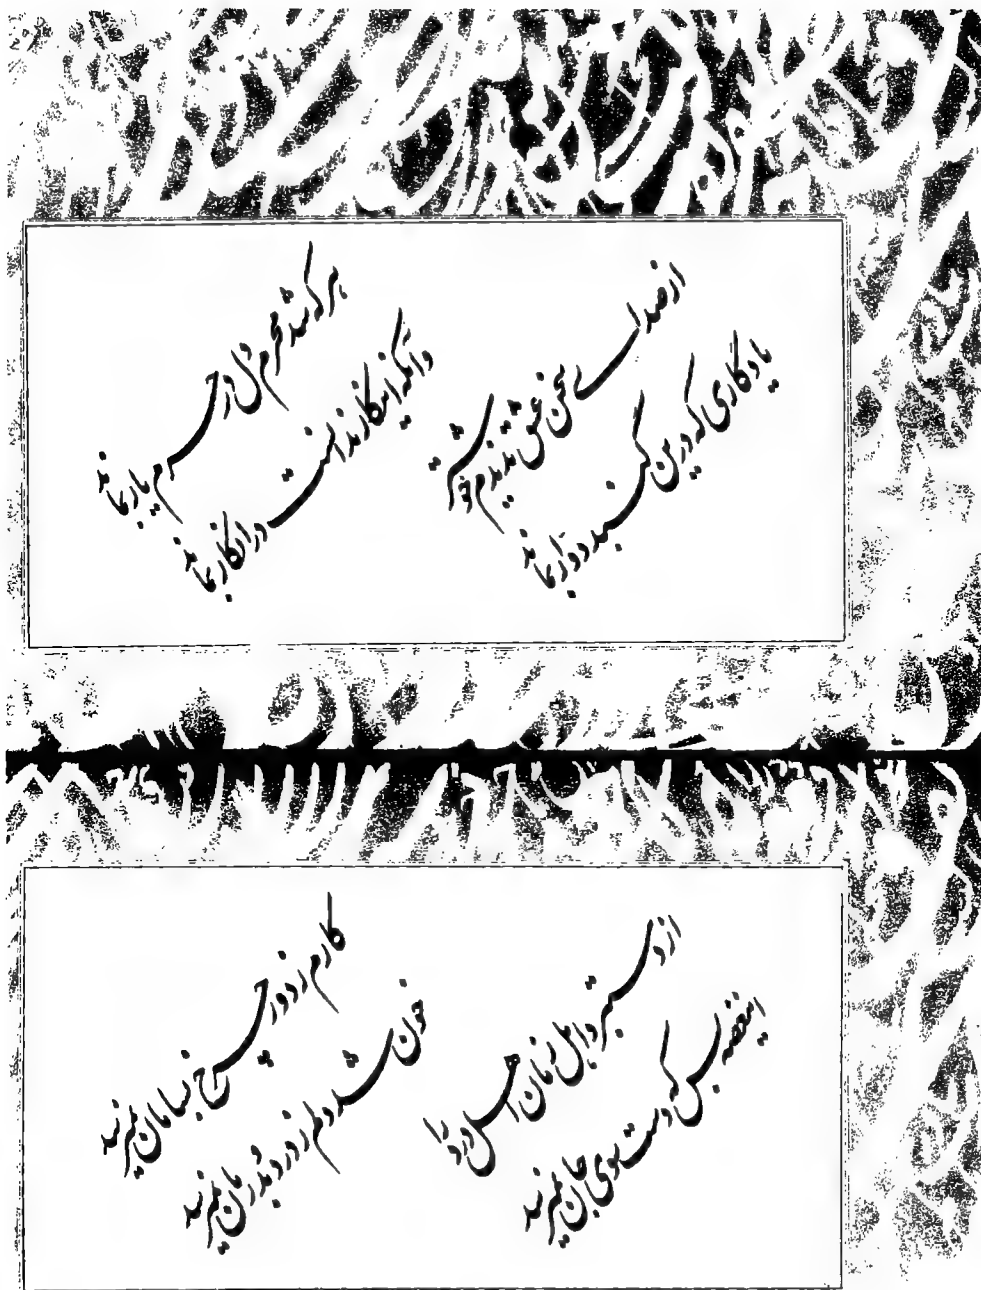 هر که شد محرم دل در حرم یار بماند
وآنکه اینکار ندانست در انکار بماند
از صدای سخن عشق ندیدم خوشتر
یادگاری که درین گنبد دوار بماند
کارم ز دور چرخ بسامان نمیرسد
خون شد دلم ز درد و بدرمان نمیرسد
از دستبرد اهل زمان اهل درد را
اینغصه بس که دست سوی جان نمیرسد